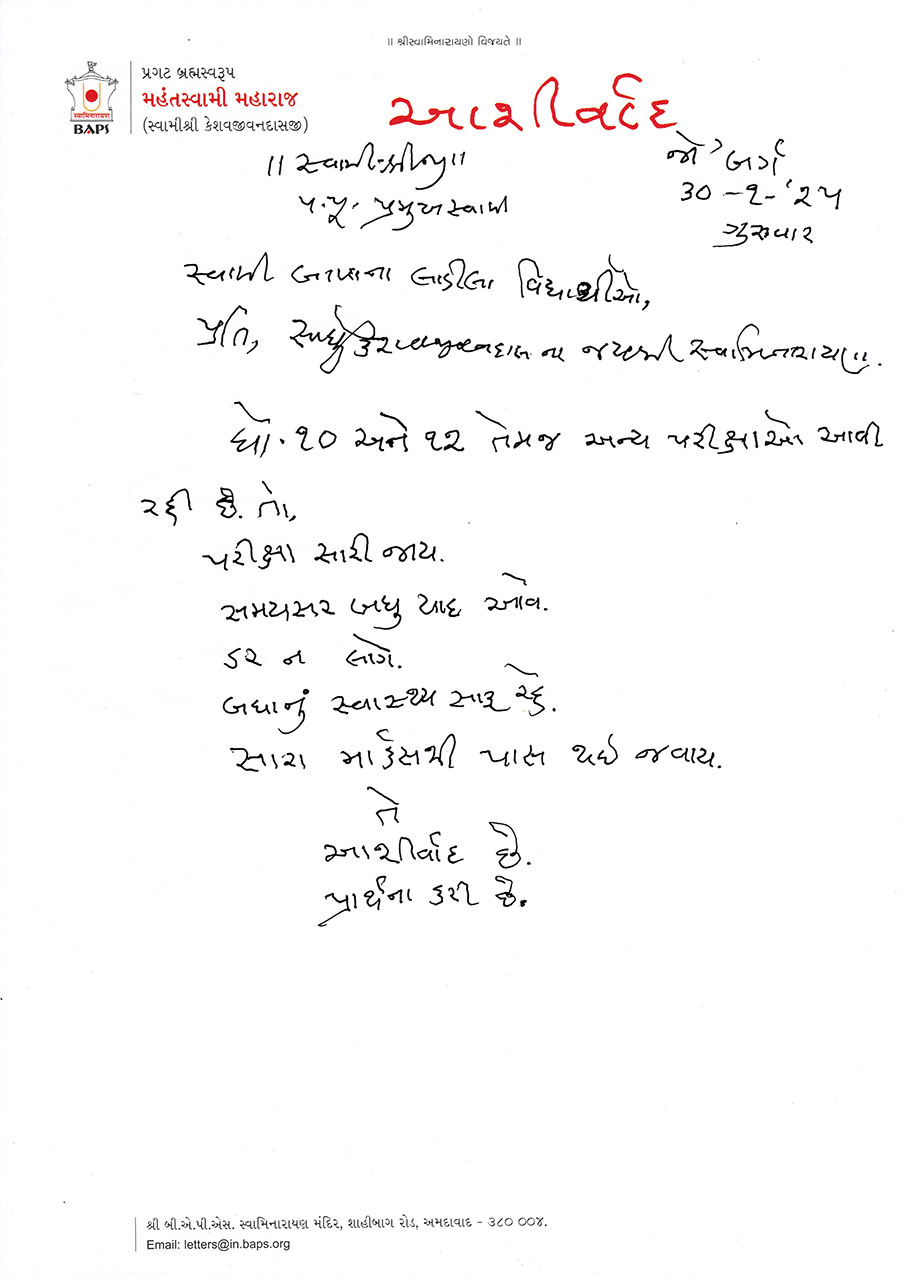 ॥ શ્રીસ્વામિનારાયણો વિજયતે ॥
પ્રગટ બ્રહ્મસ્વરૂપ
મહંતસ્વામી મહારાજ
(સ્વામીશ્રી કેશવજીવનદાસજી)
સ્વામિનારાયણ
BAPS
આશીર્વાદ
॥ સ્વામી-શ્રીજી ॥
જો'બર્ગ
પ.પૂ. પ્રમુખસ્વામી
૩૦-૧-'૨૫
ગુરુવાર
સ્વામી બાપાના લાડીલા વિદ્યાર્થીઓ,
પ્રતિ, સાધુ કેશવજીવનદાસ ના જયશ્રી સ્વામિનારાયણ.
ધો. ૧૦ અને ૧૨ તેમજ અન્ય પરીક્ષાઓ આવી
રહી છે. તો,
પરીક્ષા સારી જાય.
સમયસર બધુ યાદ આવે.
ડર ન લાગે.
બધાનું સ્વાસ્થ્ય સારૂ રહે.
સારા માર્કસથી પાસ થઈ જવાય.
તે
આશીર્વાદ છે.
પ્રાર્થના કરી છે.
શ્રી બી.એ.પી.એસ. સ્વામિનારાયણ મંદિર, શાહીબાગ રોડ, અમદાવાદ - ૩૮૦ ૦૦૪.
Email: letters@in.baps.org